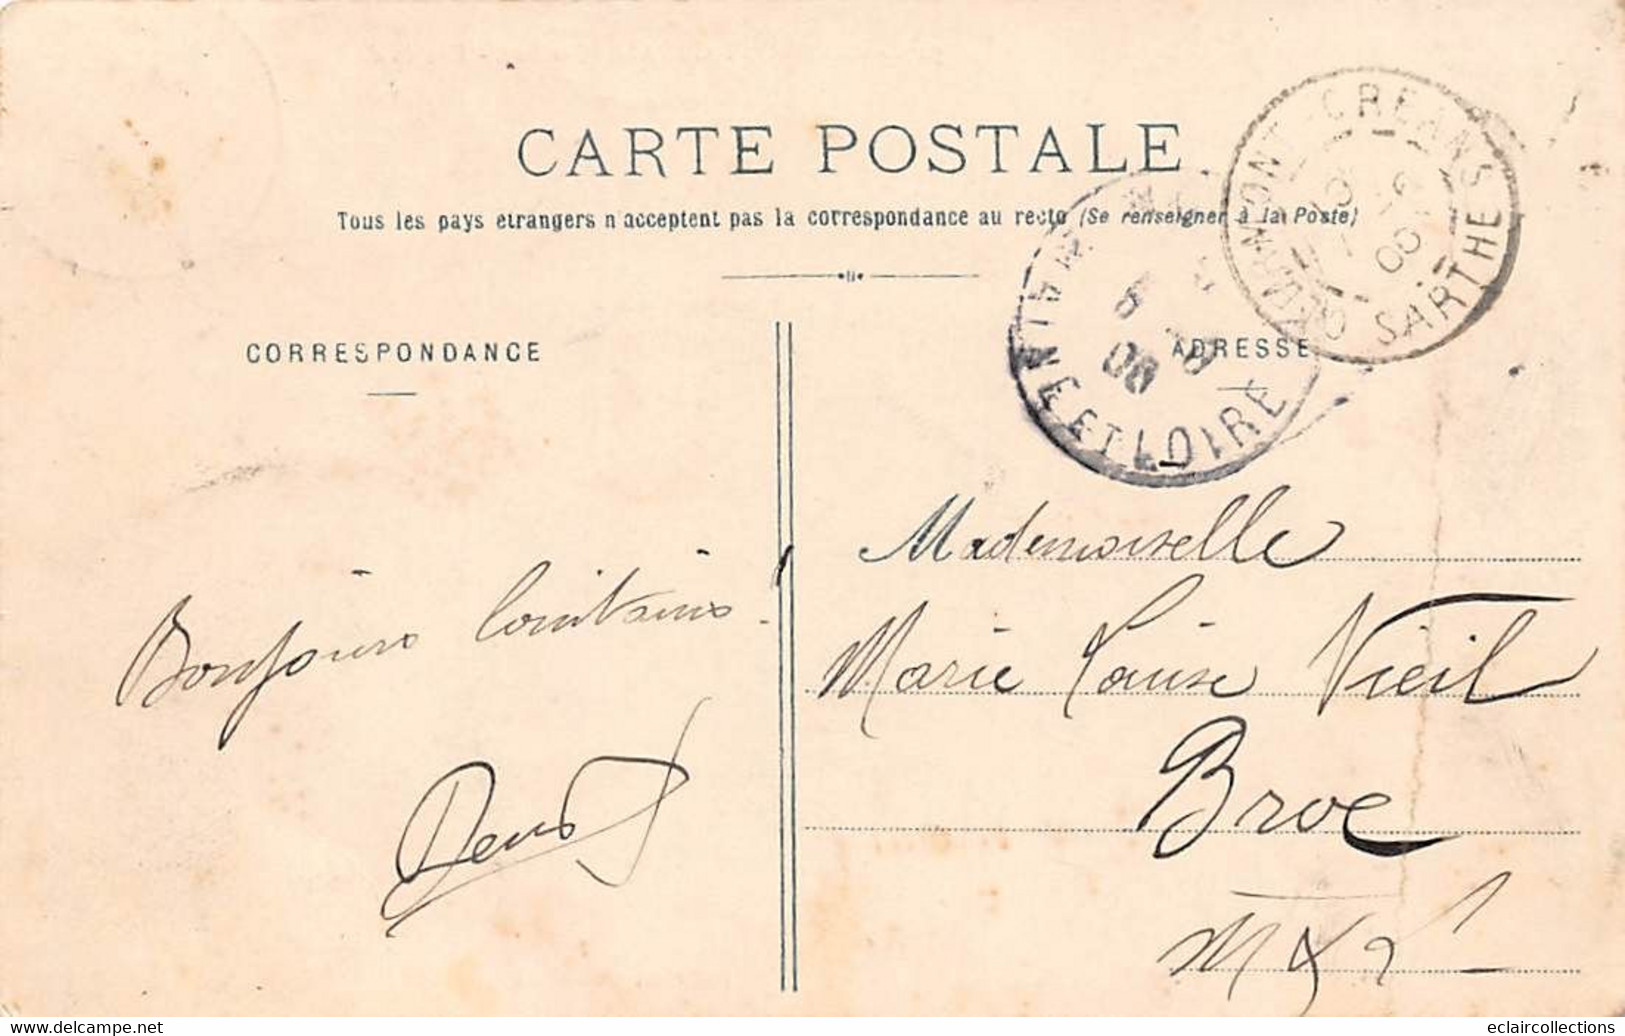 CARTE POSTALE
Tous les pays etrangers n acceptent pas la correspondance au recto (Se renseigner à la Poste)
CORRESPONDANCE
ADRESSE
CRÉANS SARTHE
06
MAINE ET LOIRE
06
Bonjours lointains !
Mademoiselle
Marie Louise Vieil
Broc
M & L
www.delcampe.net
eclaircollections